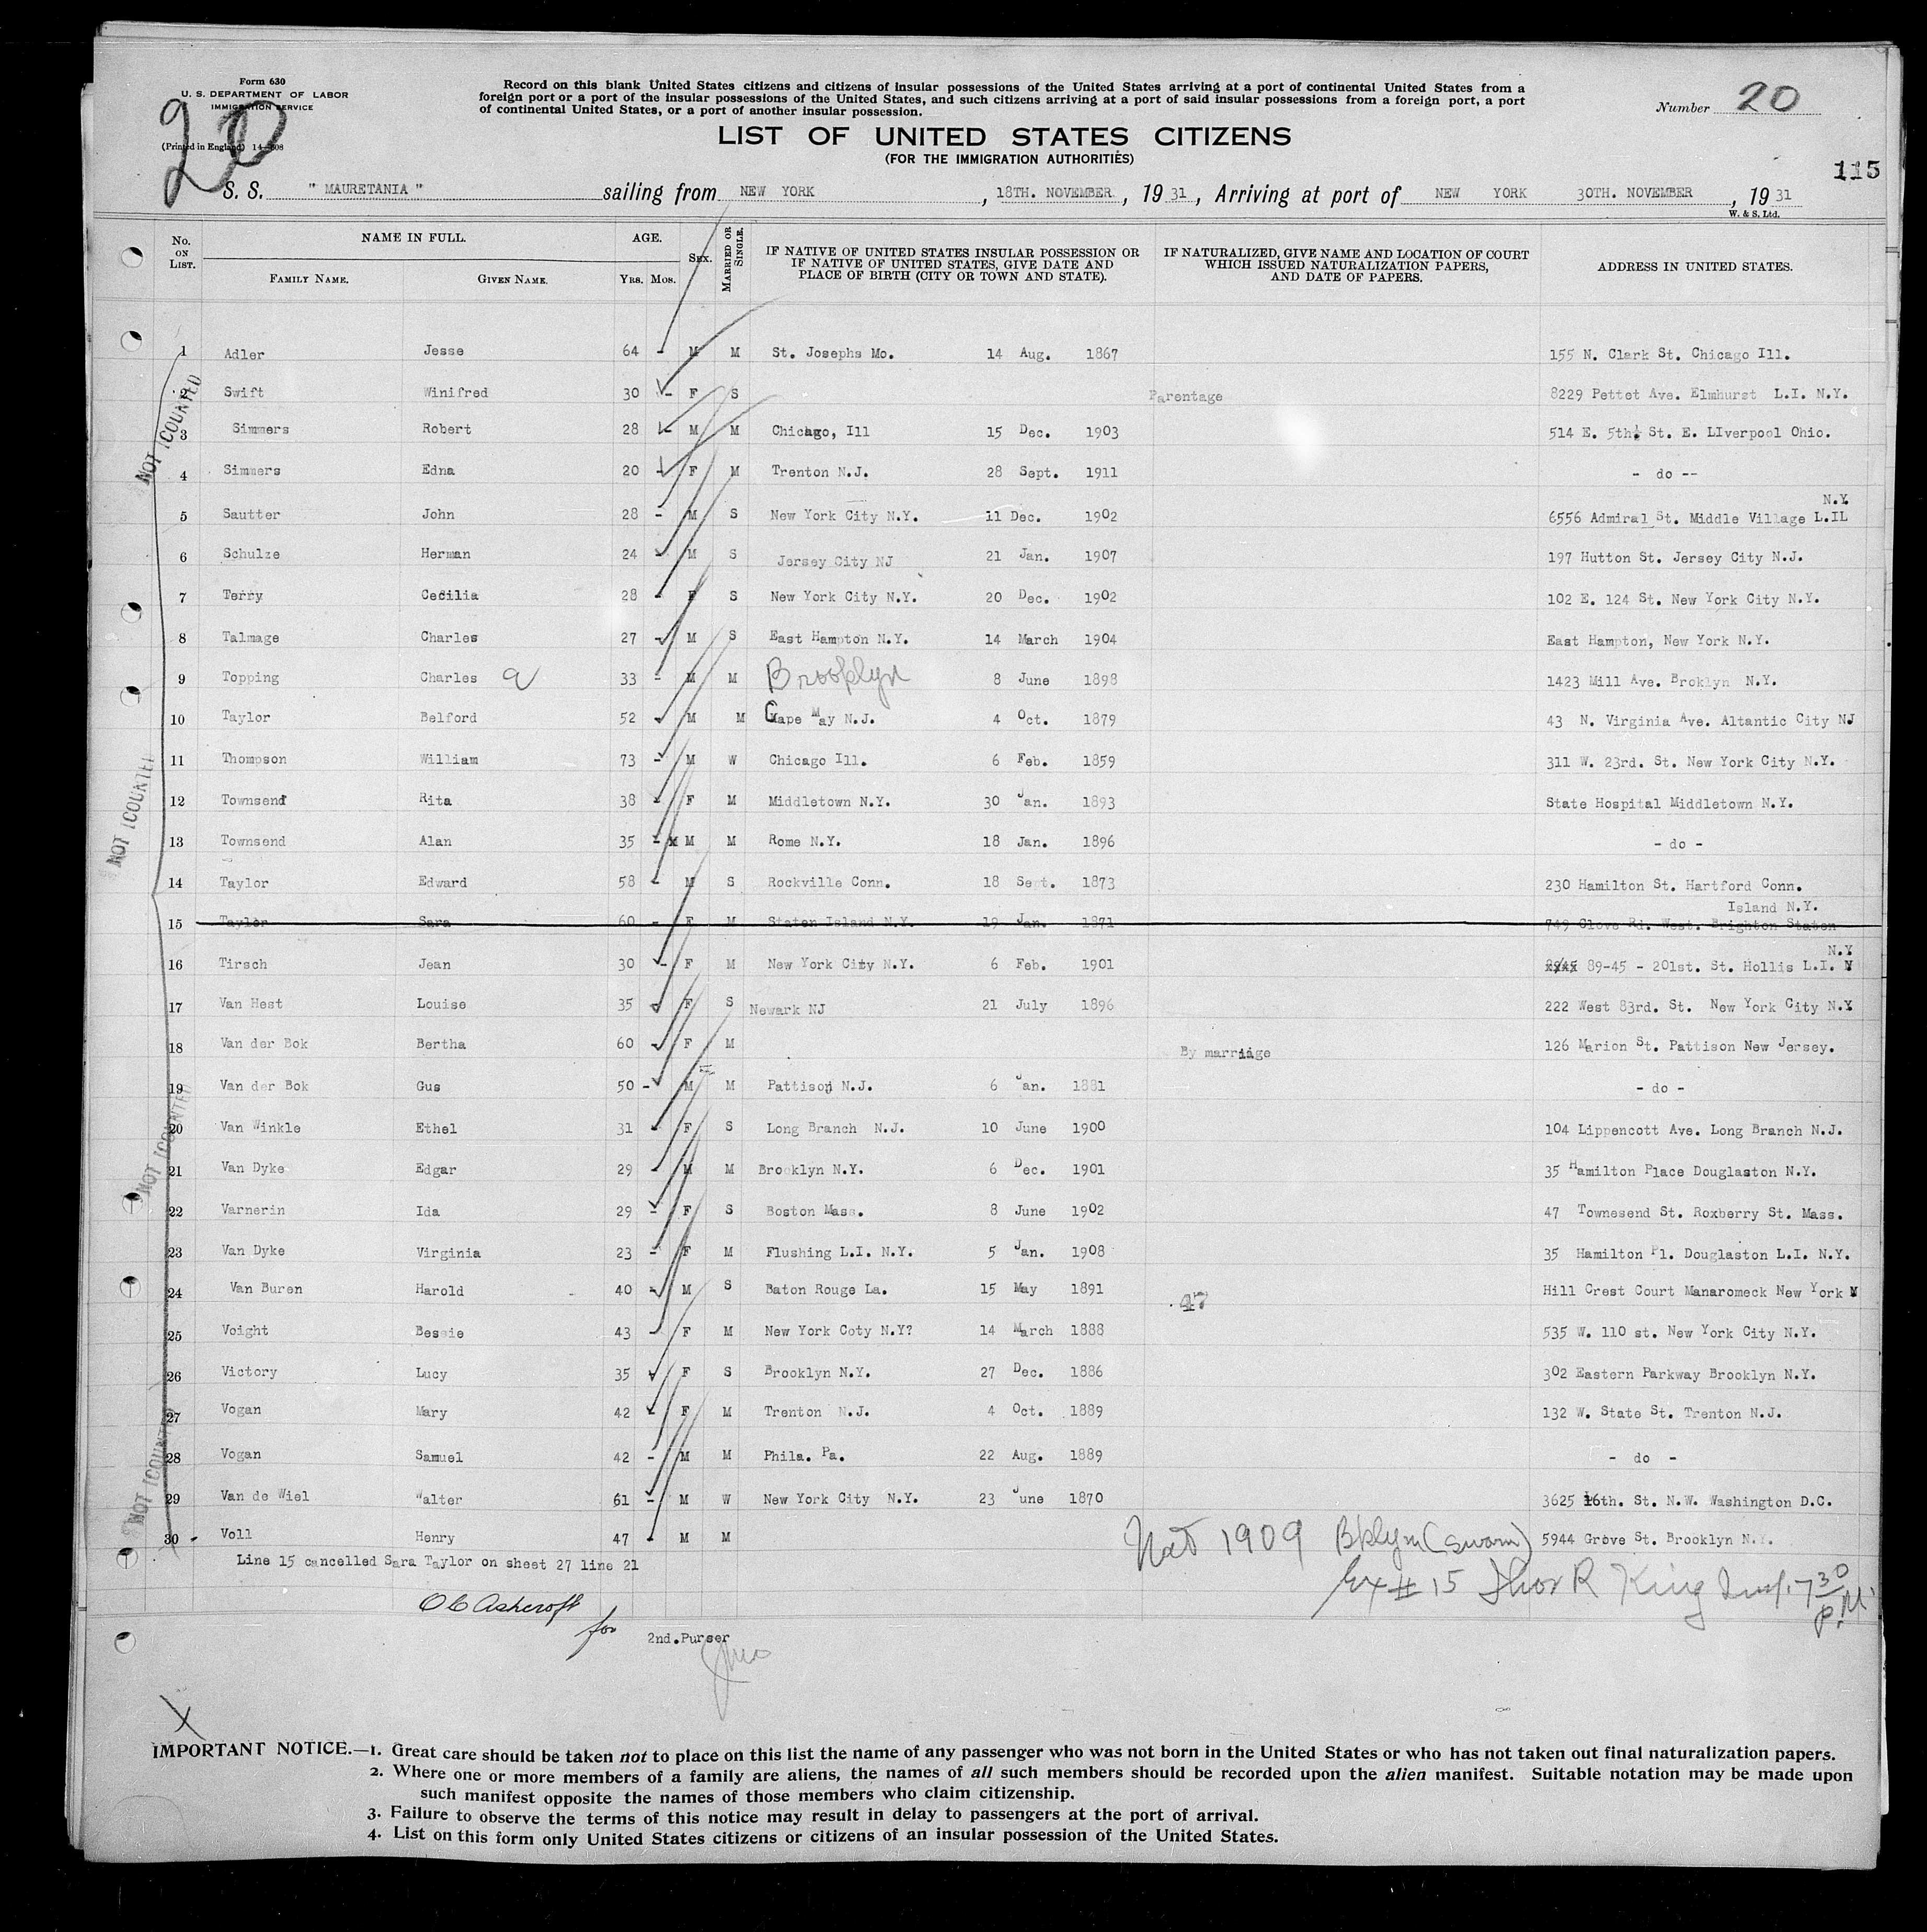 Form 630
U. S. DEPARTMENT OF LABOR
IMMIGRATION SERVICE
(Printed in England) 14—608
20
Record on this blank United States citizens and citizens of insular possessions of the United States arriving at a port of continental United States from a
foreign port or a port of the insular possessions of the United States, and such citizens arriving at a port of said insular possessions from a foreign port, a port
of continental United States, or a port of another insular possession.
Number 20
LIST OF UNITED STATES CITIZENS
(FOR THE IMMIGRATION AUTHORITIES)
115
S. S. " MAURETANIA " sailing from NEW YORK , 18TH. NOVEMBER , 19 31 , Arriving at port of NEW YORK 30TH. NOVEMBER , 19 31
W. & S. Ltd.
No. ON LIST. NAME IN FULL. FAMILY NAME. GIVEN NAME. AGE. YRS. MOS. SEX. MARRIED OR SINGLE. IF NATIVE OF UNITED STATES INSULAR POSSESSION OR IF NATIVE OF UNITED STATES, GIVE DATE AND PLACE OF BIRTH (CITY OR TOWN AND STATE). IF NATURALIZED, GIVE NAME AND LOCATION OF COURT WHICH ISSUED NATURALIZATION PAPERS, AND DATE OF PAPERS. ADDRESS IN UNITED STATES.
1 Adler Jesse 64 - M M St. Josephs Mo. 14 Aug. 1867 155 N. Clark St. Chicago Ill.
2 Swift Winifred 30 - F S Parentage 8229 Pettet Ave. Elmhurst L.I. N.Y.
3 Simmers Robert 28 - M M Chicago, Ill 15 Dec. 1903 514 E. 5th. St. E. LIverpool Ohio.
4 Simmers Edna 20 - F M Trenton N.J. 28 Sept. 1911 - do --
5 Sautter John 28 - M S New York City N.Y. 11 Dec. 1902 6556 Admiral St. Middle Village L.IL N.Y.
6 Schulze Herman 24 - M S Jersey City NJ 21 Jan. 1907 197 Hutton St. Jersey City N.J.
7 Terry Cecilia 28 - F S New York City N.Y. 20 Dec. 1902 102 E. 124 St. New York City N.Y.
8 Talmage Charles 27 - M S East Hampton N.Y. 14 March 1904 East Hampton, New York N.Y.
9 Topping Charles a 33 - M M Brooklyn 8 June 1898 1423 Mill Ave. Broklyn N.Y.
10 Taylor Belford 52 - M M Cape May N.J. 4 Oct. 1879 43 N. Virginia Ave. Altantic City NJ
11 Thompson William 73 - M W Chicago Ill. 6 Feb. 1859 311 W. 23rd. St. New York City N.Y.
12 Townsend Rita 38 - F M Middletown N.Y. 30 Jan. 1893 State Hospital Middletown N.Y.
13 Townsend Alan 35 - x M M Rome N.Y. 18 Jan. 1896 - do -
14 Taylor Edward 58 - M S Rockville Conn. 18 Sept. 1873 230 Hamilton St. Hartford Conn.
15 Taylor Sara 60 - F M Staten Island N.Y. 19 Jan. 1871 749 Clove Rd. West. Brighton Staten Island N.Y.
16 Tirsch Jean 30 - F M New York City N.Y. 6 Feb. 1901 89-45 - 201st. St. Hollis L.I. N.Y
17 Van Hest Louise 35 - F S Newark NJ 21 July 1896 222 West 83rd. St. New York City N.Y.
18 Van der Bok Bertha 60 - F M By marriage 126 Marion St. Pattison New Jersey.
19 Van der Bok Gus 50 - M M Pattison N.J. 6 Jan. 1881 - do -
20 Van Winkle Ethel 31 - F S Long Branch N.J. 10 June 1900 104 Lippencott Ave. Long Branch N.J.
21 Van Dyke Edgar 29 - M M Brooklyn N.Y. 6 Dec. 1901 35 Hamilton Place Douglaston N.Y.
22 Varnerin Ida 29 - F S Boston Mass. 8 June 1902 47 Townesend St. Roxberry St. Mass.
23 Van Dyke Virginia 23 - F M Flushing L.I. N.Y. 5 Jan. 1908 35 Hamilton Pl. Douglaston L.I. N.Y.
24 Van Buren Harold 40 - M S Baton Rouge La. 15 May 1891 47 Hill Crest Court Manaromeck New York N
25 Voight Bessie 43 - F M New York Coty N.Y? 14 March 1888 535 W. 110 st. New York City N.Y.
26 Victory Lucy 35 - F S Brooklyn N.Y. 27 Dec. 1886 302 Eastern Parkway Brooklyn N.Y.
27 Vogan Mary 42 - F M Trenton N.J. 4 Oct. 1889 132 W. State St. Trenton N.J.
28 Vogan Samuel 42 - M M Phila. Pa. 22 Aug. 1889 - do -
29 Van de Wiel Walter 61 - M W New York City N.Y. 23 June 1870 3625 16th. St. N.W. Washington D.C.
30 - Voll Henry 47 - M M Nat 1909 Bklyn (sworn) 5944 Grove St. Brooklyn N.Y.
NOT COUNTED
NOT COUNTED
NOT COUNTED
NOT COUNTED
Line 15 cancelled Sara Taylor on sheet 27 line 21
Ex # 15 Thos R King Insp. 7 30 P.M.
O C Ashcroft
for 2nd. Purser
X
IMPORTANT NOTICE.—1. Great care should be taken not to place on this list the name of any passenger who was not born in the United States or who has not taken out final naturalization papers.
2. Where one or more members of a family are aliens, the names of all such members should be recorded upon the alien manifest. Suitable notation may be made upon
such manifest opposite the names of those members who claim citizenship.
3. Failure to observe the terms of this notice may result in delay to passengers at the port of arrival.
4. List on this form only United States citizens or citizens of an insular possession of the United States.